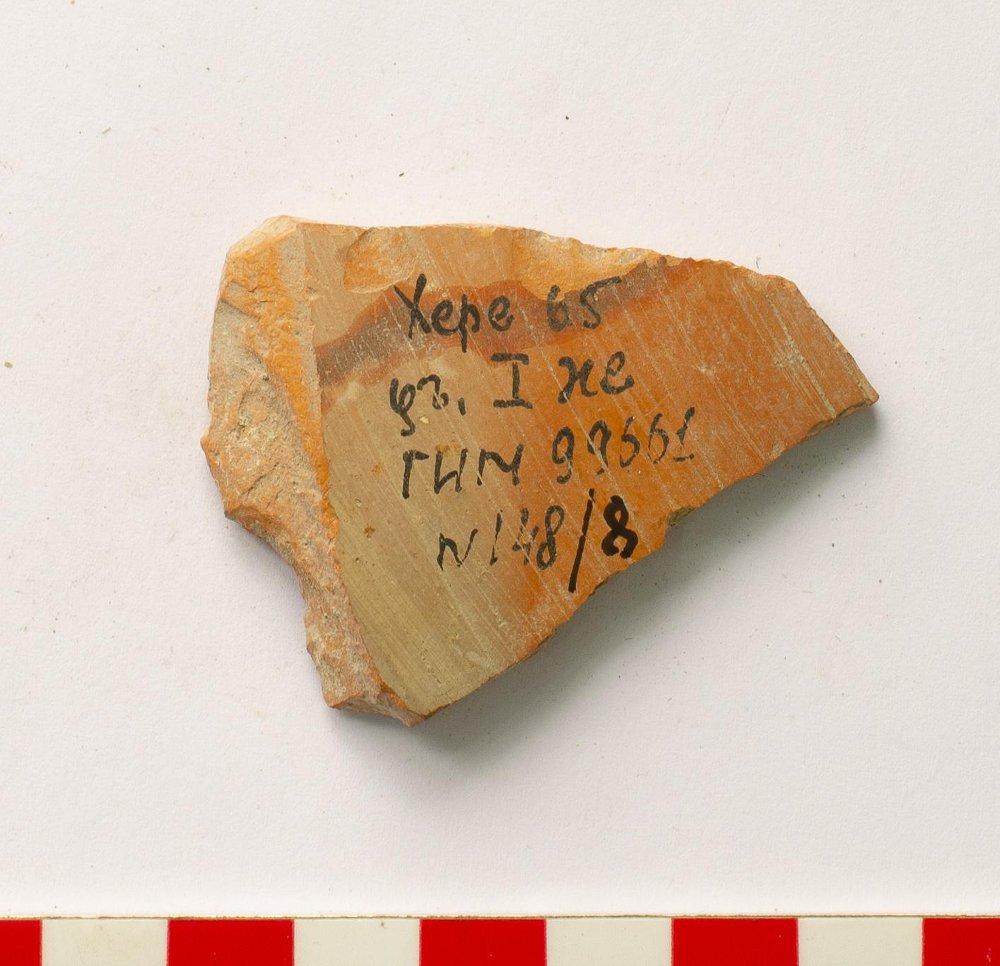 Херс 65
цт. I же
ГИМ 99661
N 148/8